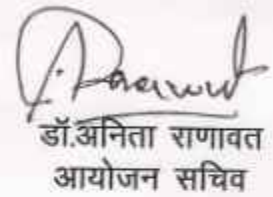 डॉ.अनिता राणावत
आयोजन सचिव